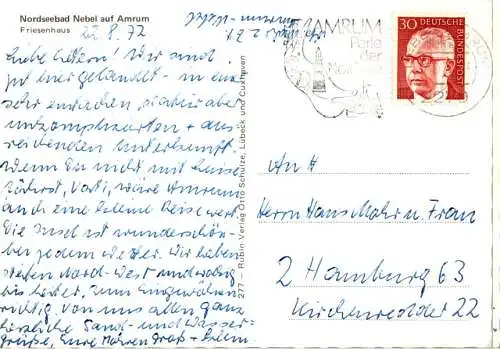 Nordseebad Nebel auf Amrum
Friesenhaus
22.8.72
Liebe Eltern! Wir sind
gut hier gelandet - in einer
sehr einfachen, dafür aber
unkomplizierten + aus-
reichenden Unterkunft.
Wenn Du nicht mit Luise
fährst, Vati, wäre Amrum
auch eine kleine Reise wert.
Die Insel ist wunderschön-
bei jedem Wetter. Wir haben
steten Nord-West und
bis hierher. Zum Eingewöhnen
richtig. Von uns allen ganz
herzliche Sand- und Wasser-
grüße, Eure
277 - Rubin-Verlag Otto Schulze, Lübeck und Cuxhaven
AMRUM
Perle
der
30
DEUTSCHE
BUNDESPOST
An
Herrn Hans Mahr u. Frau
2 Hamburg 63
Kirchenredder 22